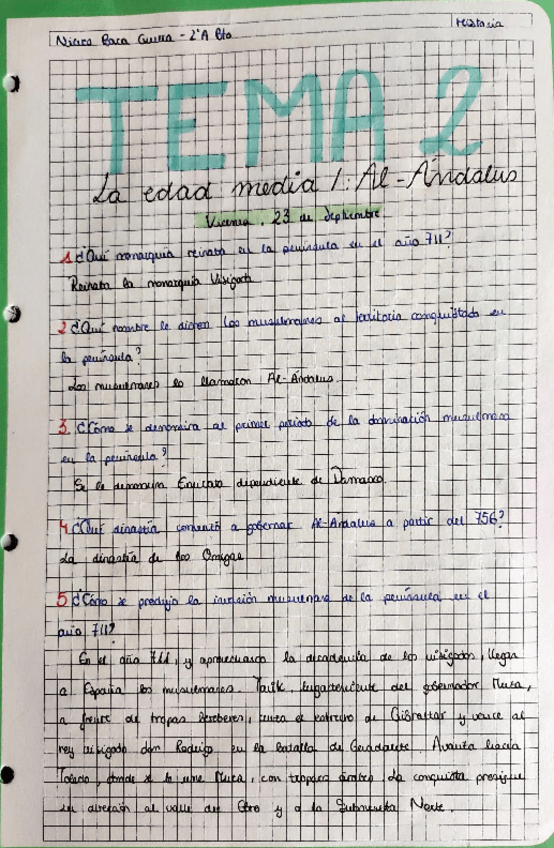 Historia
Baca Guerra - 2ºA Bto
TEMA 2
La edad media I: Al-Ándalus
23 de septiembre
1 ¿Qué monarquía reinaba en la península en el año 711?
Reinaba la monarquía Visigoda
2 ¿Qué nombre le dieron los musulmanes al territorio conquistado en
la península?
Los musulmanes lo llamaron Al-Ándalus.
3. ¿Cómo se denomina al primer periodo de la dominación musulmana
en la península?
Se le denomina Emirato dependiente de Damasco.
4 ¿Qué dinastía comenzó a gobernar Al-Ándalus a partir del 756?
La dinastía de los Omeyas
5 ¿Cómo se produjo la invasión musulmana de la península en el
año 711?
En el año 711, y aprovechando la decadencia de los visigodos, llegan
a España los musulmanes Tarik, lugarteniente del gobernador Muza,
a frente de tropas bereberes, cruza el estrecho de Gibraltar y vence al
rey visigodo don Rodrigo en la batalla de Guadalete. Avanza hacia
Toledo, donde se le une Muza, con tropas árabes. La conquista prosigue
en dirección al valle del Ebro y a la Submeseta Norte.